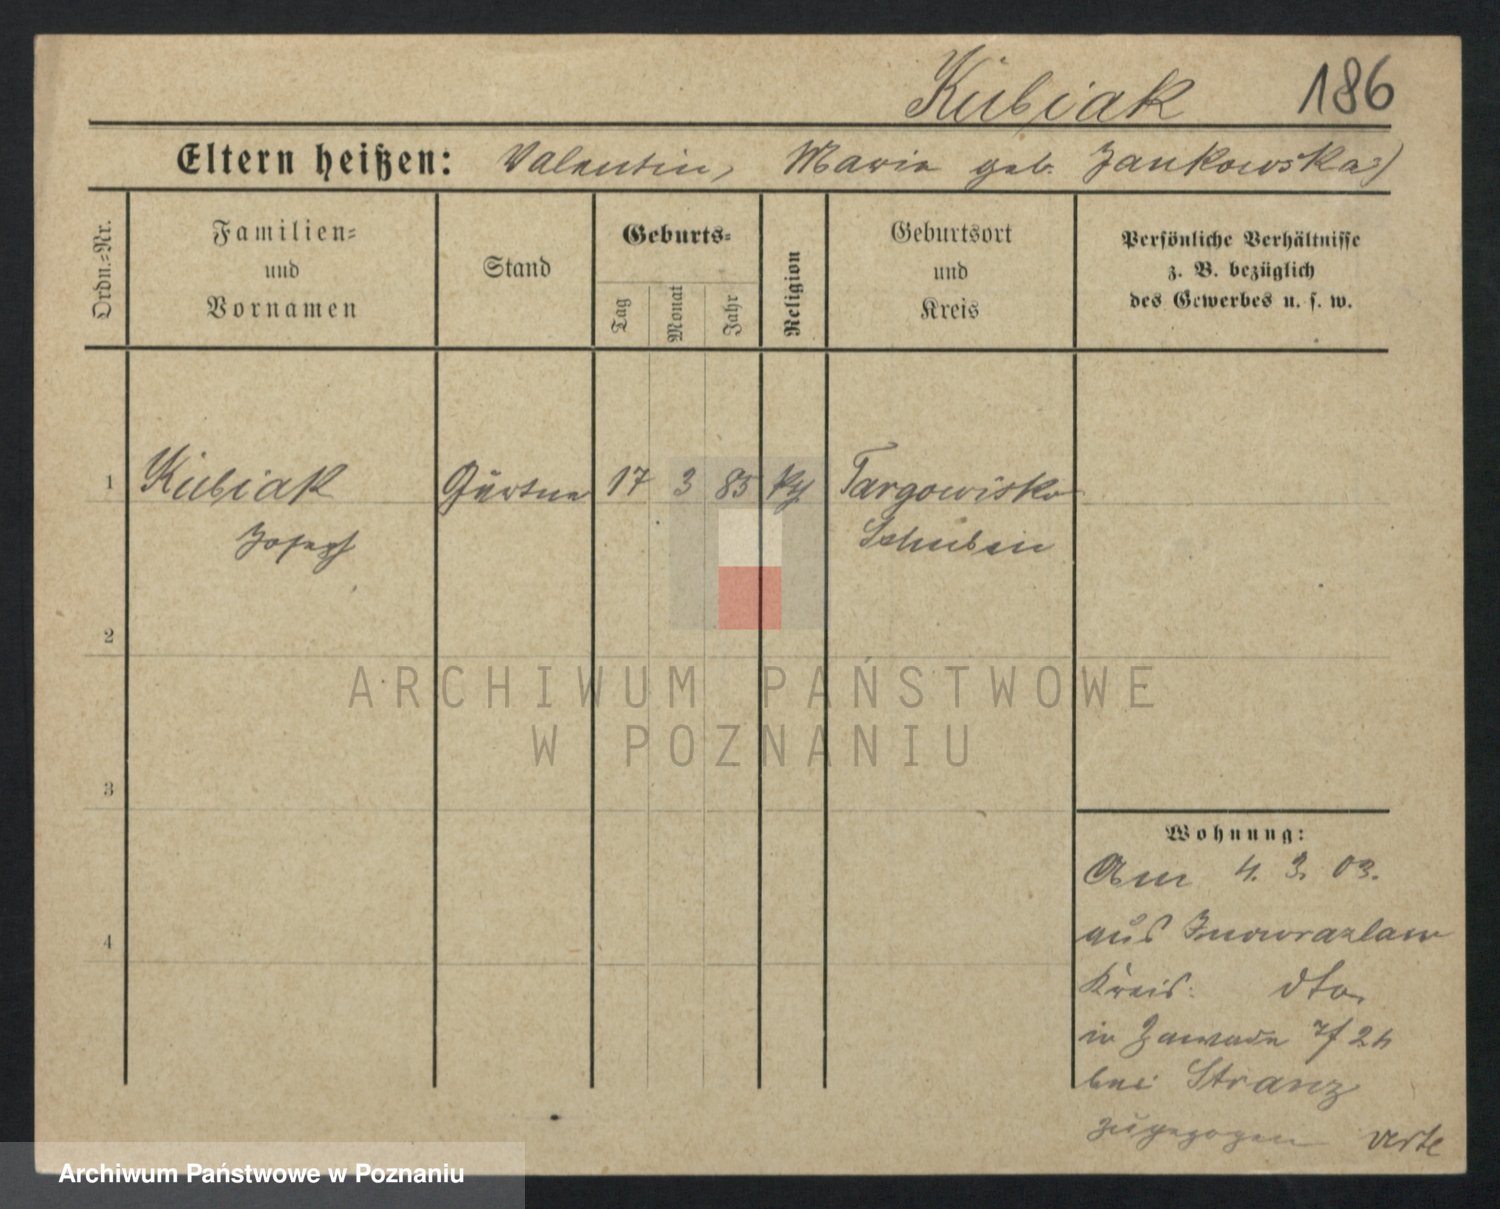 Kubiak 186
Eltern heißen: Valentin, Marie geb. Jankowska)
Ordn.=Nr.
Familien=
und
Vornamen
Stand
Geburts=
Tag
Monat
Jahr
Religion
Geburtsort
und
Kreis
Persönliche Verhältnisse
z. B. bezüglich
des Gewerbes u. s. w.
1 Kubiak Gärtner 17 3 85 Targowisko
Joseph Schubin
2
3
4
Wohnung:
Am 4. 3. 03.
aus Inowrazlaw
Kreis: dto
in Zawade
bei Stranz
zugezogen verte
ARCHIWUM PAŃSTWOWE
W POZNANIU
Archiwum Państwowe w Poznaniu